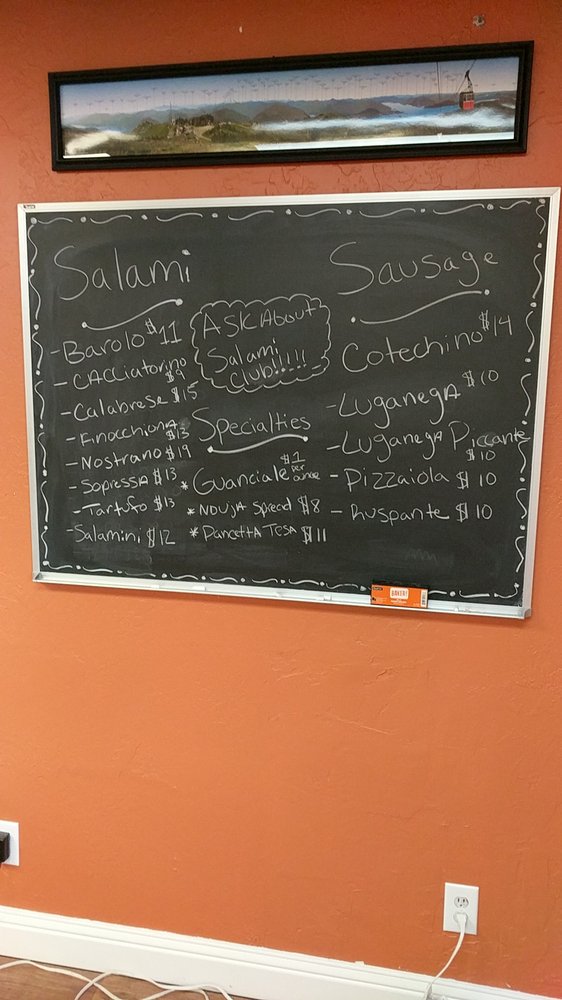 Salami
- Barolo $11
- CACCiatorino $9
- Calabrese $15
- Finocchiona $13
- Nostrano $19
- SopressA $13
- Tartufo $13
- Salamini $12
ASK About
Salami
Club!!!!!
Specialties
* Guanciale $1 per ounce
* NDUJA Spread $8
* PancettA TesA $11
Sausage
Cotechino $14
- LuganegA $10
- LuganegA Piccante $10
- Pizzaiola $10
- Ruspante $10